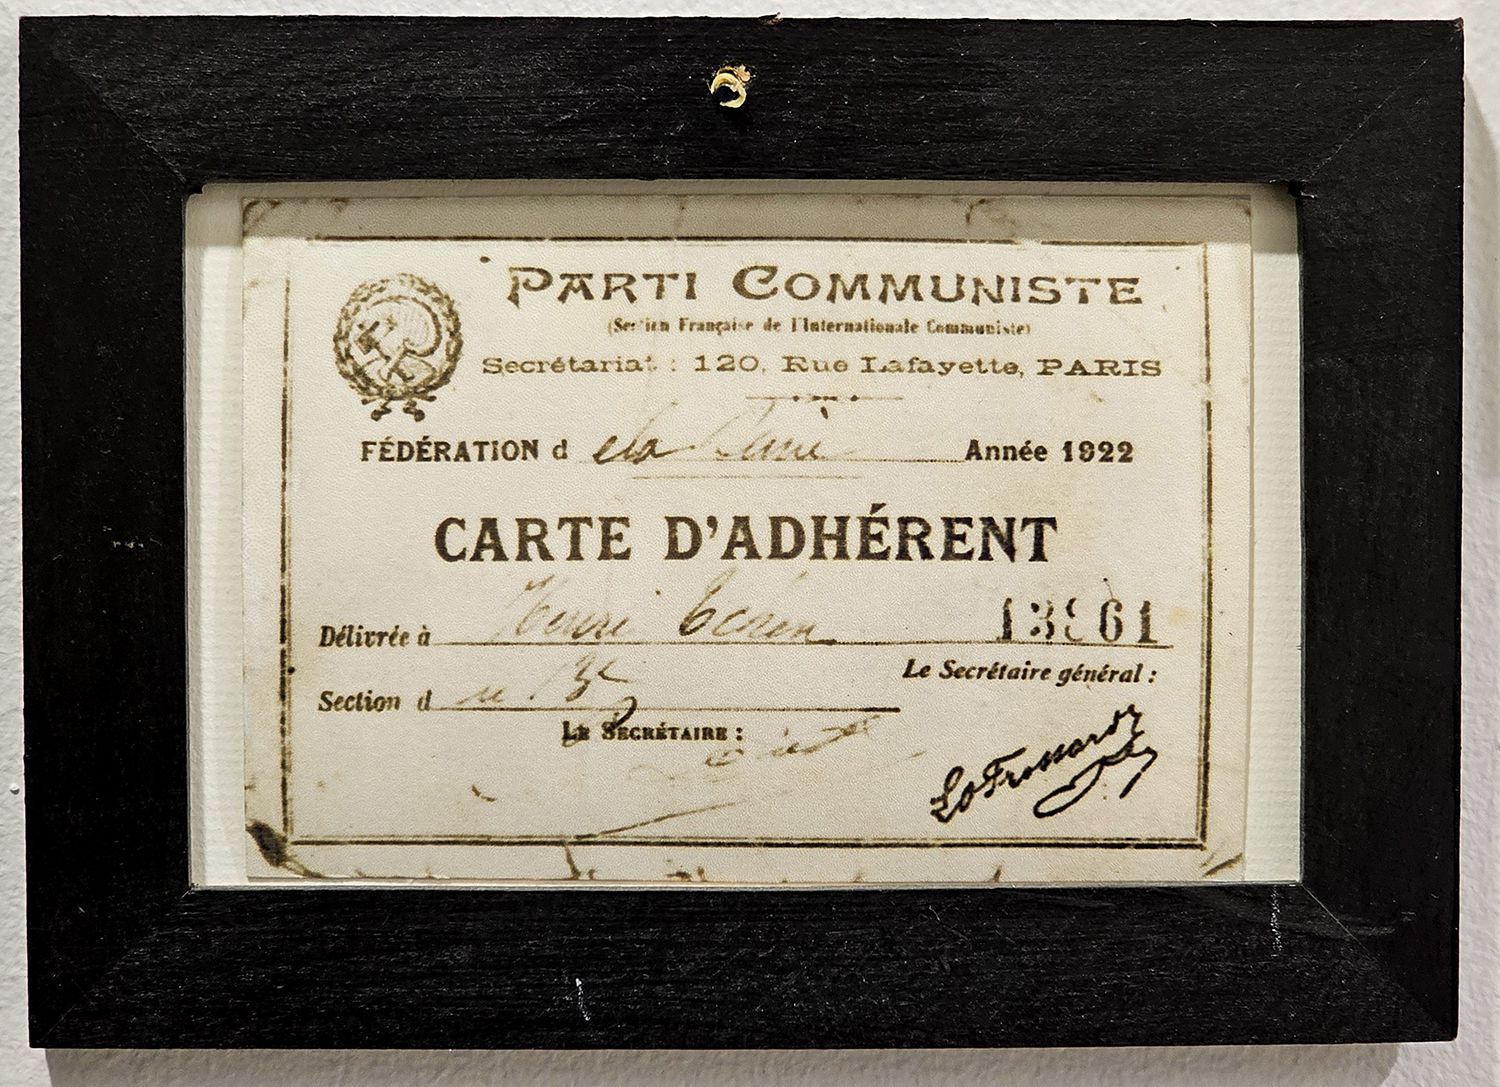 PARTI COMMUNISTE
(Section Française de l'Internationale Communiste)
Secrétariat : 120, Rue Lafayette, PARIS
FÉDÉRATION d e la Seine Année 1922
CARTE D'ADHÉRENT
Délivrée à Henri
Section d u 13e
Le Secrétaire général :
LE SECRÉTAIRE :
LOFrossard